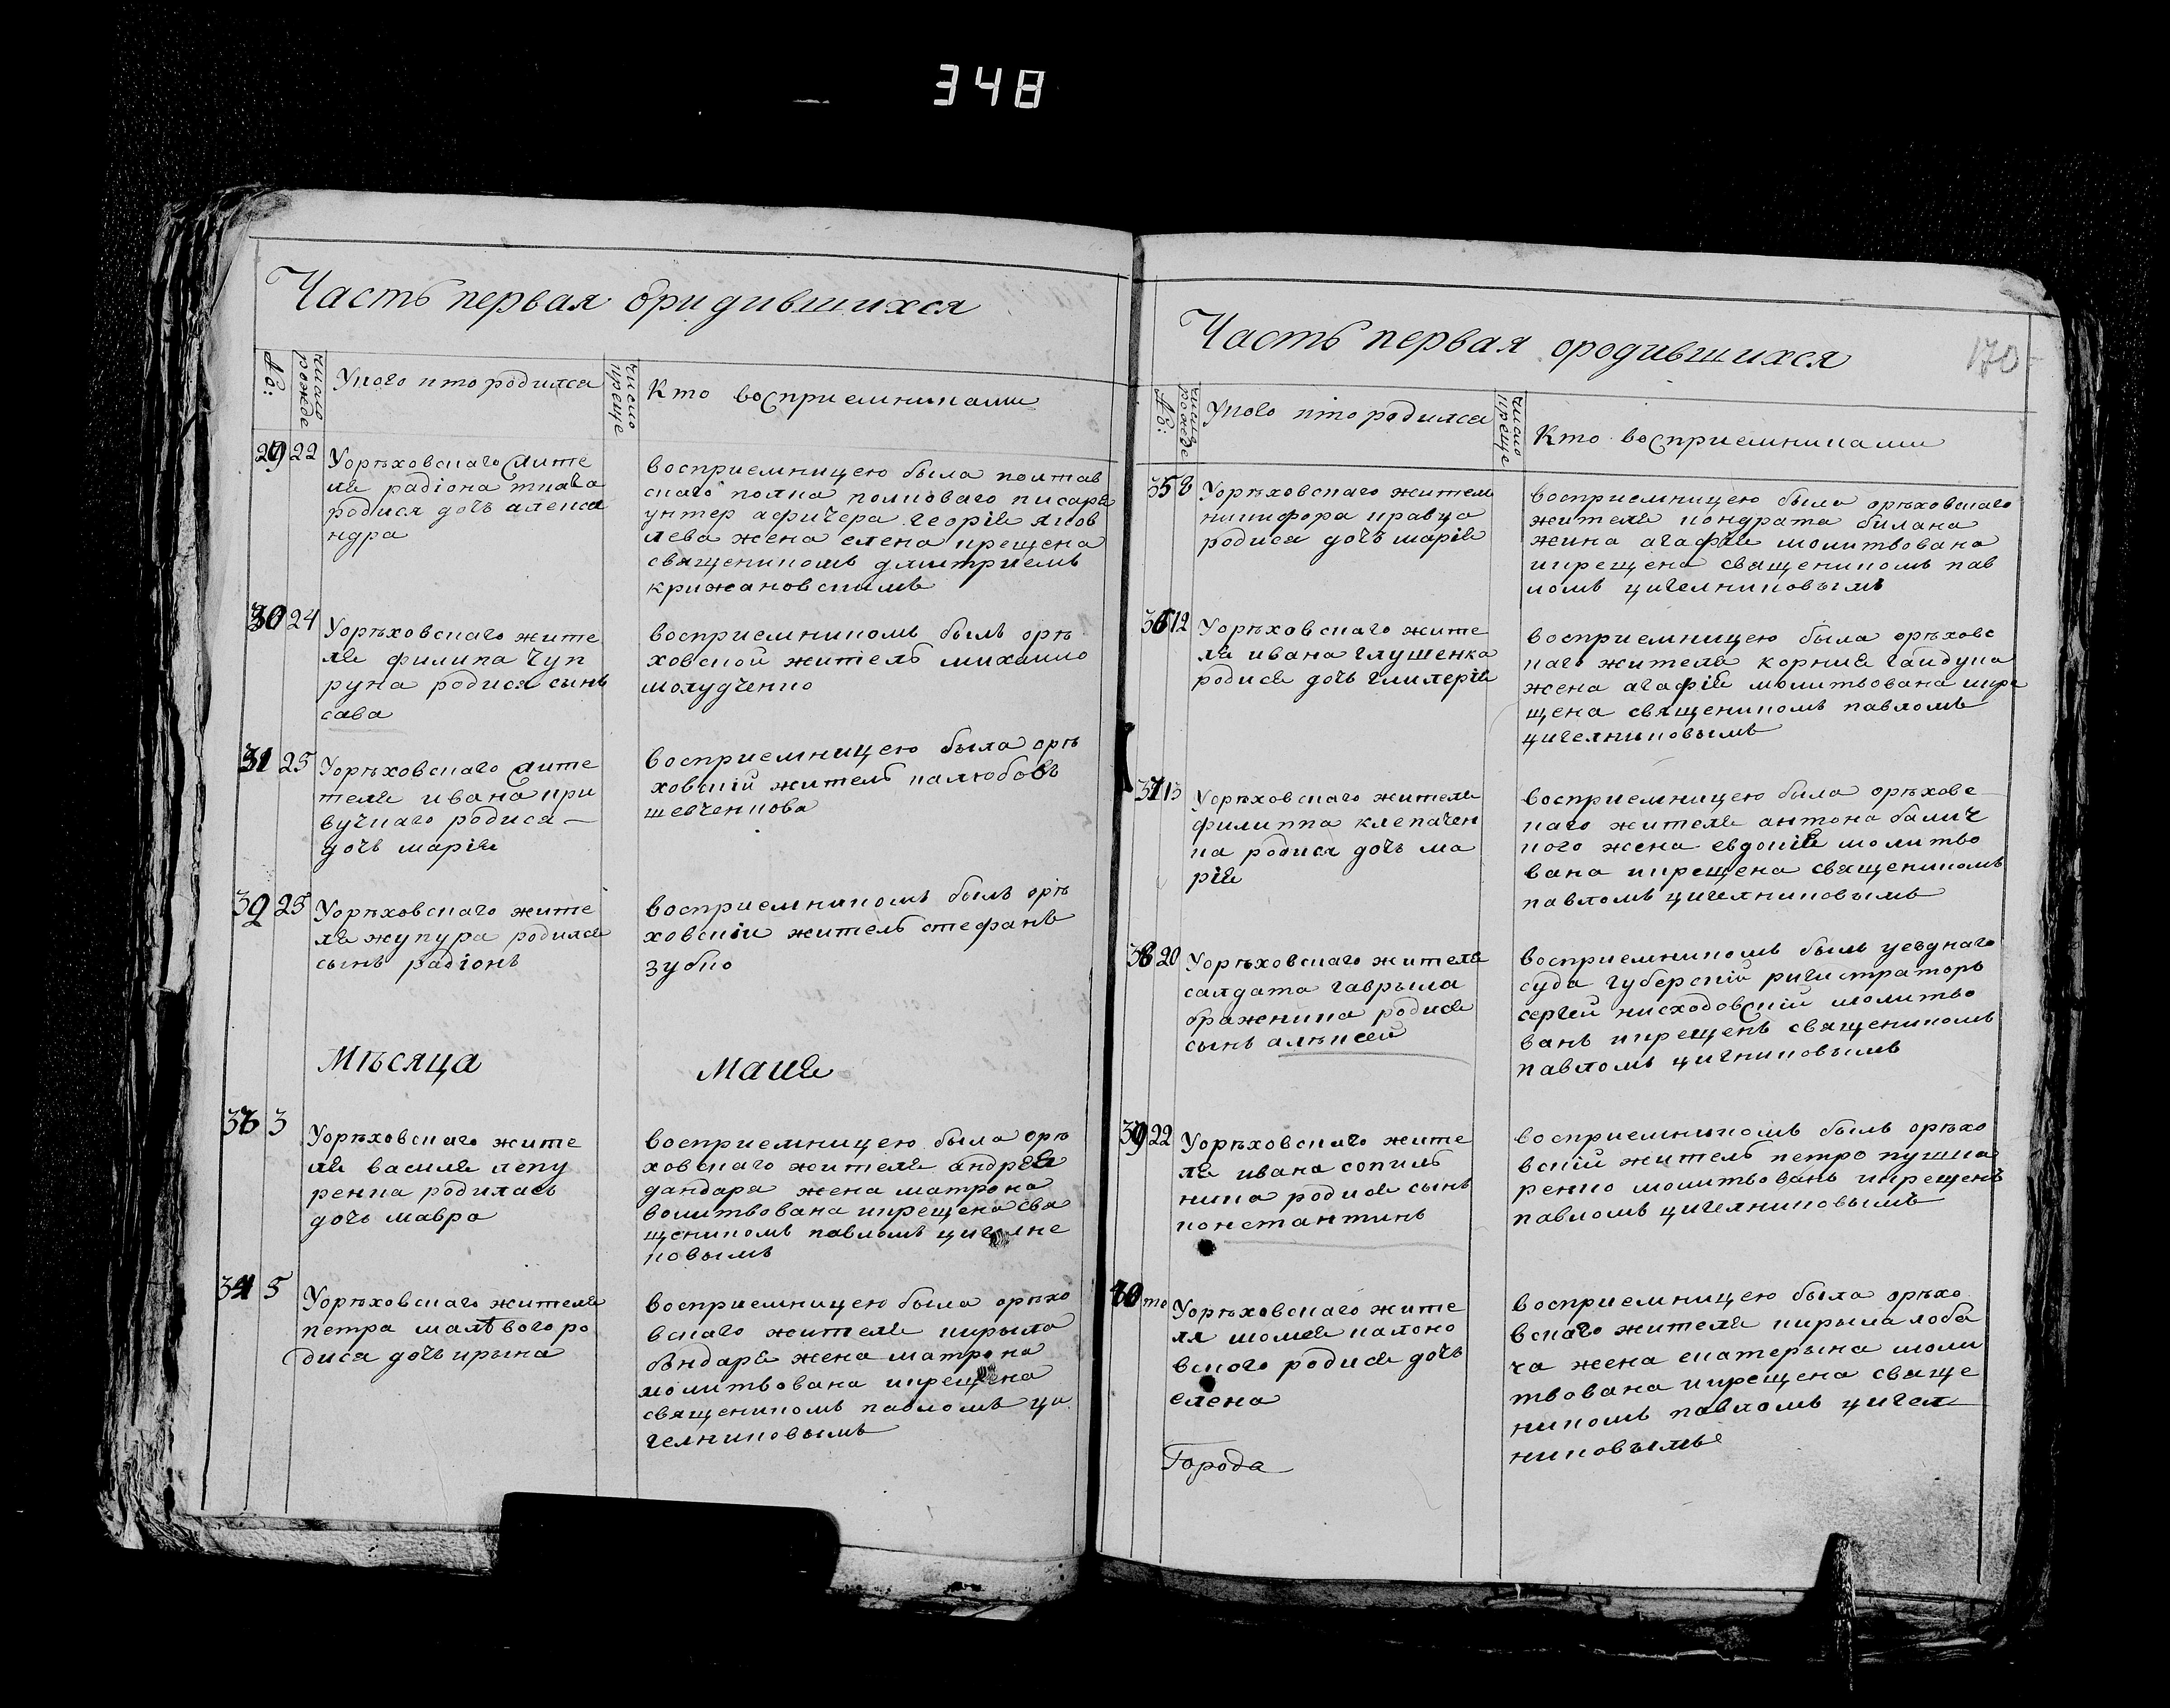 348
Часть первая оридившихся
№:
число рожде
У кого кто родился
число креще
Кто восприемниками
29 22
У орѣховскаго жите
ля радiона ткача
родися дочь алекса
ндра
восприемницею была полтав
скаго полка полковаго писаря
унтер афичера георгiя яков
лева жена елена крещена
священикомъ дмитрием
крижановскимъ
30 24
У орѣховскаго жите
ля филипа чуп
руна родися сынъ
сава
восприемникомъ былъ орѣ
ховской житель михаило
31 25
У орѣховскаго жите
теля ивана кри
вучкаго родися
дочь марiя
восприемницею была орѣ
ховскiй житель калюбовъ
шевченкова
32 25
У орѣховскаго жите
ля жупура родился
сынъ радiонъ
восприемникомъ былъ орѣ
ховскiи житель стефанъ
зубко
Мѣсяца Маия
33 3
У орѣховскаго жите
ля василя лепу
ренка родилась
дочь мавра
восприемницею была орѣ
ховскаго жителя андрея
дандара жена матрона
волитвована икрещена свя
щеникомъ павломъ цигелне
ковымъ
34 5
У орѣховскаго жителя
петра малѣвого ро
дися дочь ирына
восприемницею была орѣхо
вскаго жителя кирыла
бѣндаря жена матрона
молитвована икрещена
священикомъ павломъ ци
гелниковымъ
Часть первая ородившихся
170
№:
число рожде
У кого кто родился
число креще
Кто восприемниками
35 8
У орѣховскаго жителя
никифора кравца
родися дочь марiя
восприемницею была орѣховскаго
жителя кондрата билана
жина агафия молитвована
икрещена священикомъ пав
ломъ цигелниковымъ
36 12
У орѣховскаго жите
ля ивана глушенка
родися дочь гликерiя
восприемницею была орѣховс
каго жителя корния гайдука
жена агафiя молитвована икре
щена священикомъ павломъ
цигелниковымъ
37 13
У орѣховскаго жителя
филиппа клепачен
ка родися дочь ма
рiя
восприемницею была орѣховс
каго жителя антона балич
кого жена евдокiя молитво
вана икрещена священикомъ
павломъ цигелниковымъ
38 20
У орѣховскаго жителя
салдата гаврыла
бражника родися
сынъ алѣксей
восприемникомъ былъ уезднаго
суда губерскiй ригистраторъ
сергей нисходовскiй молитво
ванъ икрещенъ священикомъ
павломъ цигниковымъ
39 22
У орѣховскаго жите
ля ивана сопиль
ника родися сынъ
константинъ
восприемникомъ былъ орѣхо
вскiй житель петро пушка
ренко молитвованъ икрещенъ
павломъ цигелниковымъ
40 то
У орѣховскаго жите
ля шомея калоко
вского родися дочь
елена
восприемницею была орѣхо
вскаго жителя кирыла лоба
ча жена екатерына моли
твована икрещена свяще
никомъ павломъ цигел
никовымъ
Города